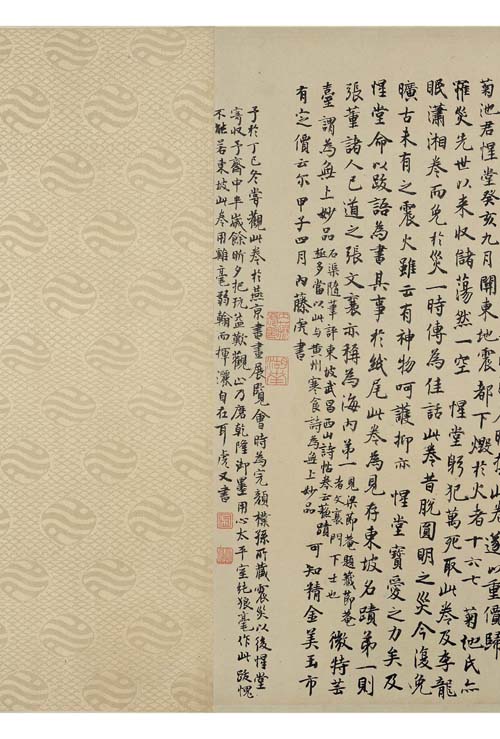 卷遂以重價歸
菊池君惺堂癸亥九月關東地震都下燬於火者十六七菊池氏亦
罹災先世以來收儲蕩然一空惺堂躬犯萬死取此卷及李龍
眠瀟湘卷而免於災一時傳為佳話此卷昔脫圓明之災今復免
曠古未有之震火雖云有神物呵護抑亦惺堂寶愛之力矣及
惺堂命以跋語為書其事於紙尾此卷為見存東坡名蹟第一則
張董諸人已道之張文襄亦稱為海內第一見梁節菴題籤節菴者文襄門下士也微特芸
臺謂為無上妙品石渠隨筆評東坡武昌西山詩帖卷云蘇蹟極多當以此與黃州寒食詩為無上妙品可知精金美玉市
有定價云尔甲子四月內藤虎書
予於丁巳冬嘗觀此卷於燕京書畫展覽會時為完顏樸孫所藏震災以後惺堂
寄收予齋中半歲餘昕夕把玩益歎觀止乃磨乾隆御墨用心太平室純狼毫作此跋愧
不能若東坡此卷用雞毫弱翰而揮灑自在耳虎又書